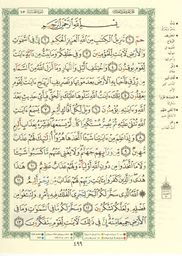 بِسْمِ اللَّهِ الرَّحْمَٰنِ الرَّحِيمِ
حم ١ تَنزِيلُ الْكِتَابِ مِنَ اللَّهِ الْعَزِيزِ الْحَكِيمِ ٢ إِنَّ فِي السَّمَاوَاتِ
وَالْأَرْضِ لَآيَاتٍ لِّلْمُؤْمِنِينَ ٣ وَفِي خَلْقِكُمْ وَمَا يَبُثُّ مِن دَابَّةٍ آيَاتٌ
لِّقَوْمٍ يُوقِنُونَ ٤ وَاخْتِلَافِ اللَّيْلِ وَالنَّهَارِ وَمَا أَنزَلَ اللَّهُ مِنَ السَّمَاءِ
مِن رِّزْقٍ فَأَحْيَا بِهِ الْأَرْضَ بَعْدَ مَوْتِهَا وَتَصْرِيفِ الرِّيَاحِ آيَاتٌ لِّقَوْمٍ
يَعْقِلُونَ ٥ تِلْكَ آيَاتُ اللَّهِ نَتْلُوهَا عَلَيْكَ بِالْحَقِّ فَبِأَيِّ حَدِيثٍ بَعْدَ
اللَّهِ وَآيَاتِهِ يُؤْمِنُونَ ٦ وَيْلٌ لِّكُلِّ أَفَّاكٍ أَثِيمٍ ٧ يَسْمَعُ آيَاتِ اللَّهِ
تُتْلَىٰ عَلَيْهِ ثُمَّ يُصِرُّ مُسْتَكْبِرًا كَأَن لَّمْ يَسْمَعْهَا فَبَشِّرْهُ بِعَذَابٍ أَلِيمٍ ٨
وَإِذَا عَلِمَ مِنْ آيَاتِنَا شَيْئًا اتَّخَذَهَا هُزُوًا أُولَٰئِكَ لَهُمْ عَذَابٌ مُّهِينٌ ٩
مِّن وَرَائِهِمْ جَهَنَّمُ وَلَا يُغْنِي عَنْهُم مَّا كَسَبُوا شَيْئًا
وَلَا مَا اتَّخَذُوا مِن دُونِ اللَّهِ أَوْلِيَاءَ وَلَهُمْ عَذَابٌ عَظِيمٌ ١٠
هَٰذَا هُدًى وَالَّذِينَ كَفَرُوا بِآيَاتِ رَبِّهِمْ لَهُمْ عَذَابٌ مِّن رِّجْزٍ أَلِيمٌ ١١
اللَّهُ الَّذِي سَخَّرَ لَكُمُ الْبَحْرَ لِتَجْرِيَ الْفُلْكُ فِيهِ بِأَمْرِهِ وَلِتَبْتَغُوا مِن
فَضْلِهِ وَلَعَلَّكُمْ تَشْكُرُونَ ١٢ وَسَخَّرَ لَكُم مَّا فِي السَّمَاوَاتِ وَمَا فِي
الْأَرْضِ جَمِيعًا مِّنْهُ إِنَّ فِي ذَٰلِكَ لَآيَاتٍ لِّقَوْمٍ يَتَفَكَّرُونَ ١٣
٤٩٩